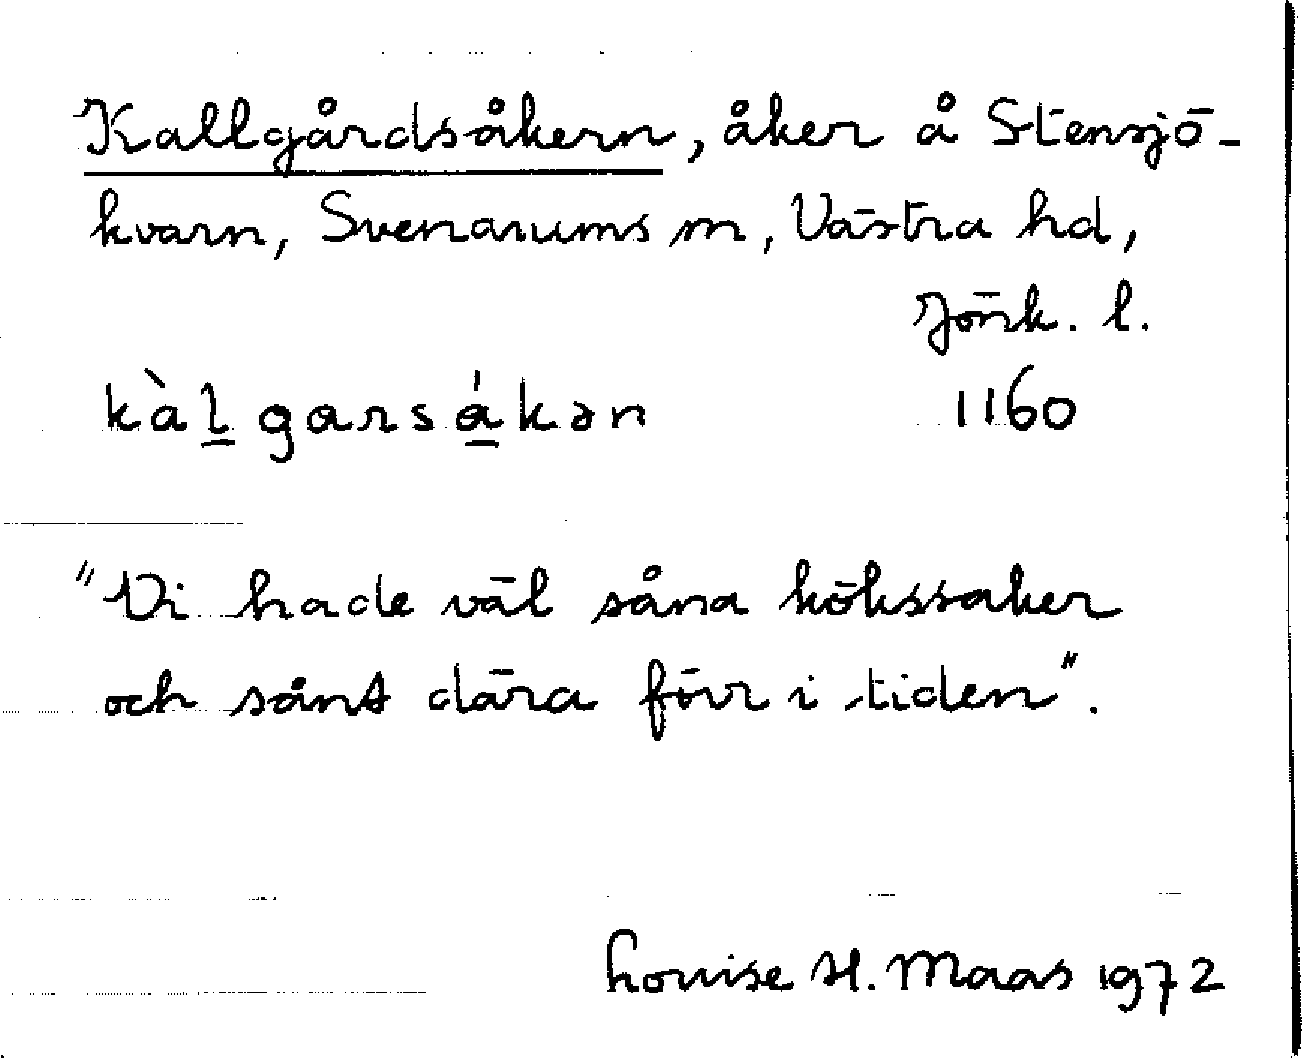 Kallgårdsåkern, åker å Stensjö-
kvarn, Svenarums sn, Västra hd,
Jönk. l.
kàl garsákən 1160
"Vi hade väl såna kökssaker
och sånt dära förr i tiden".
Louise H. Maas 1972